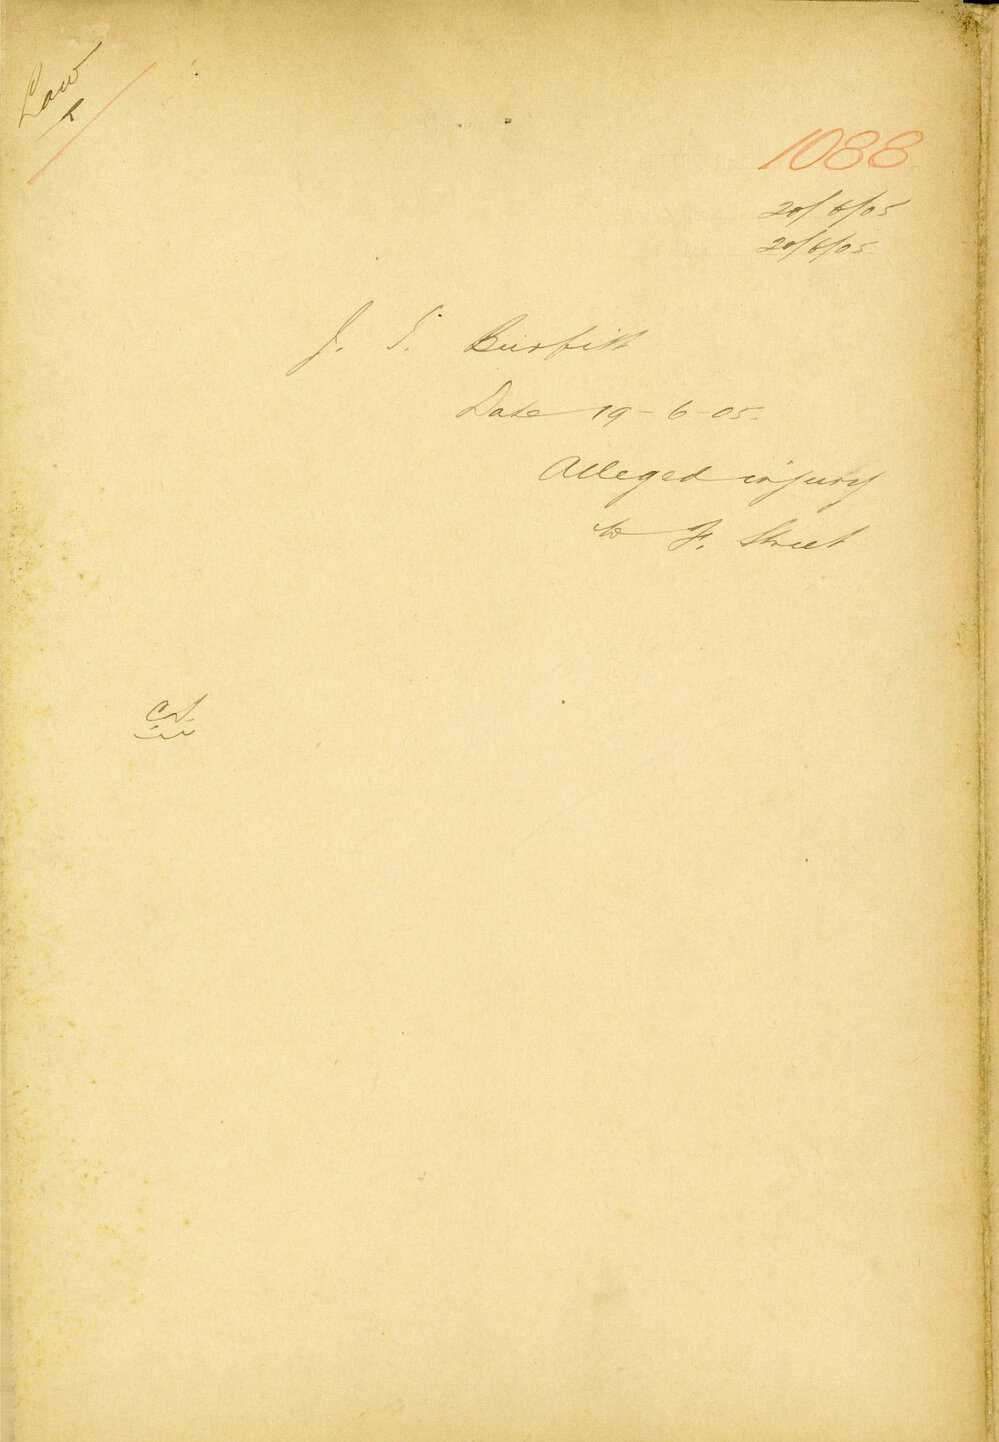 Law
1088
20/6/05
20/6/05
J. S. Burfitt
Date 19-6-05.
Alleged injury
to F. Street